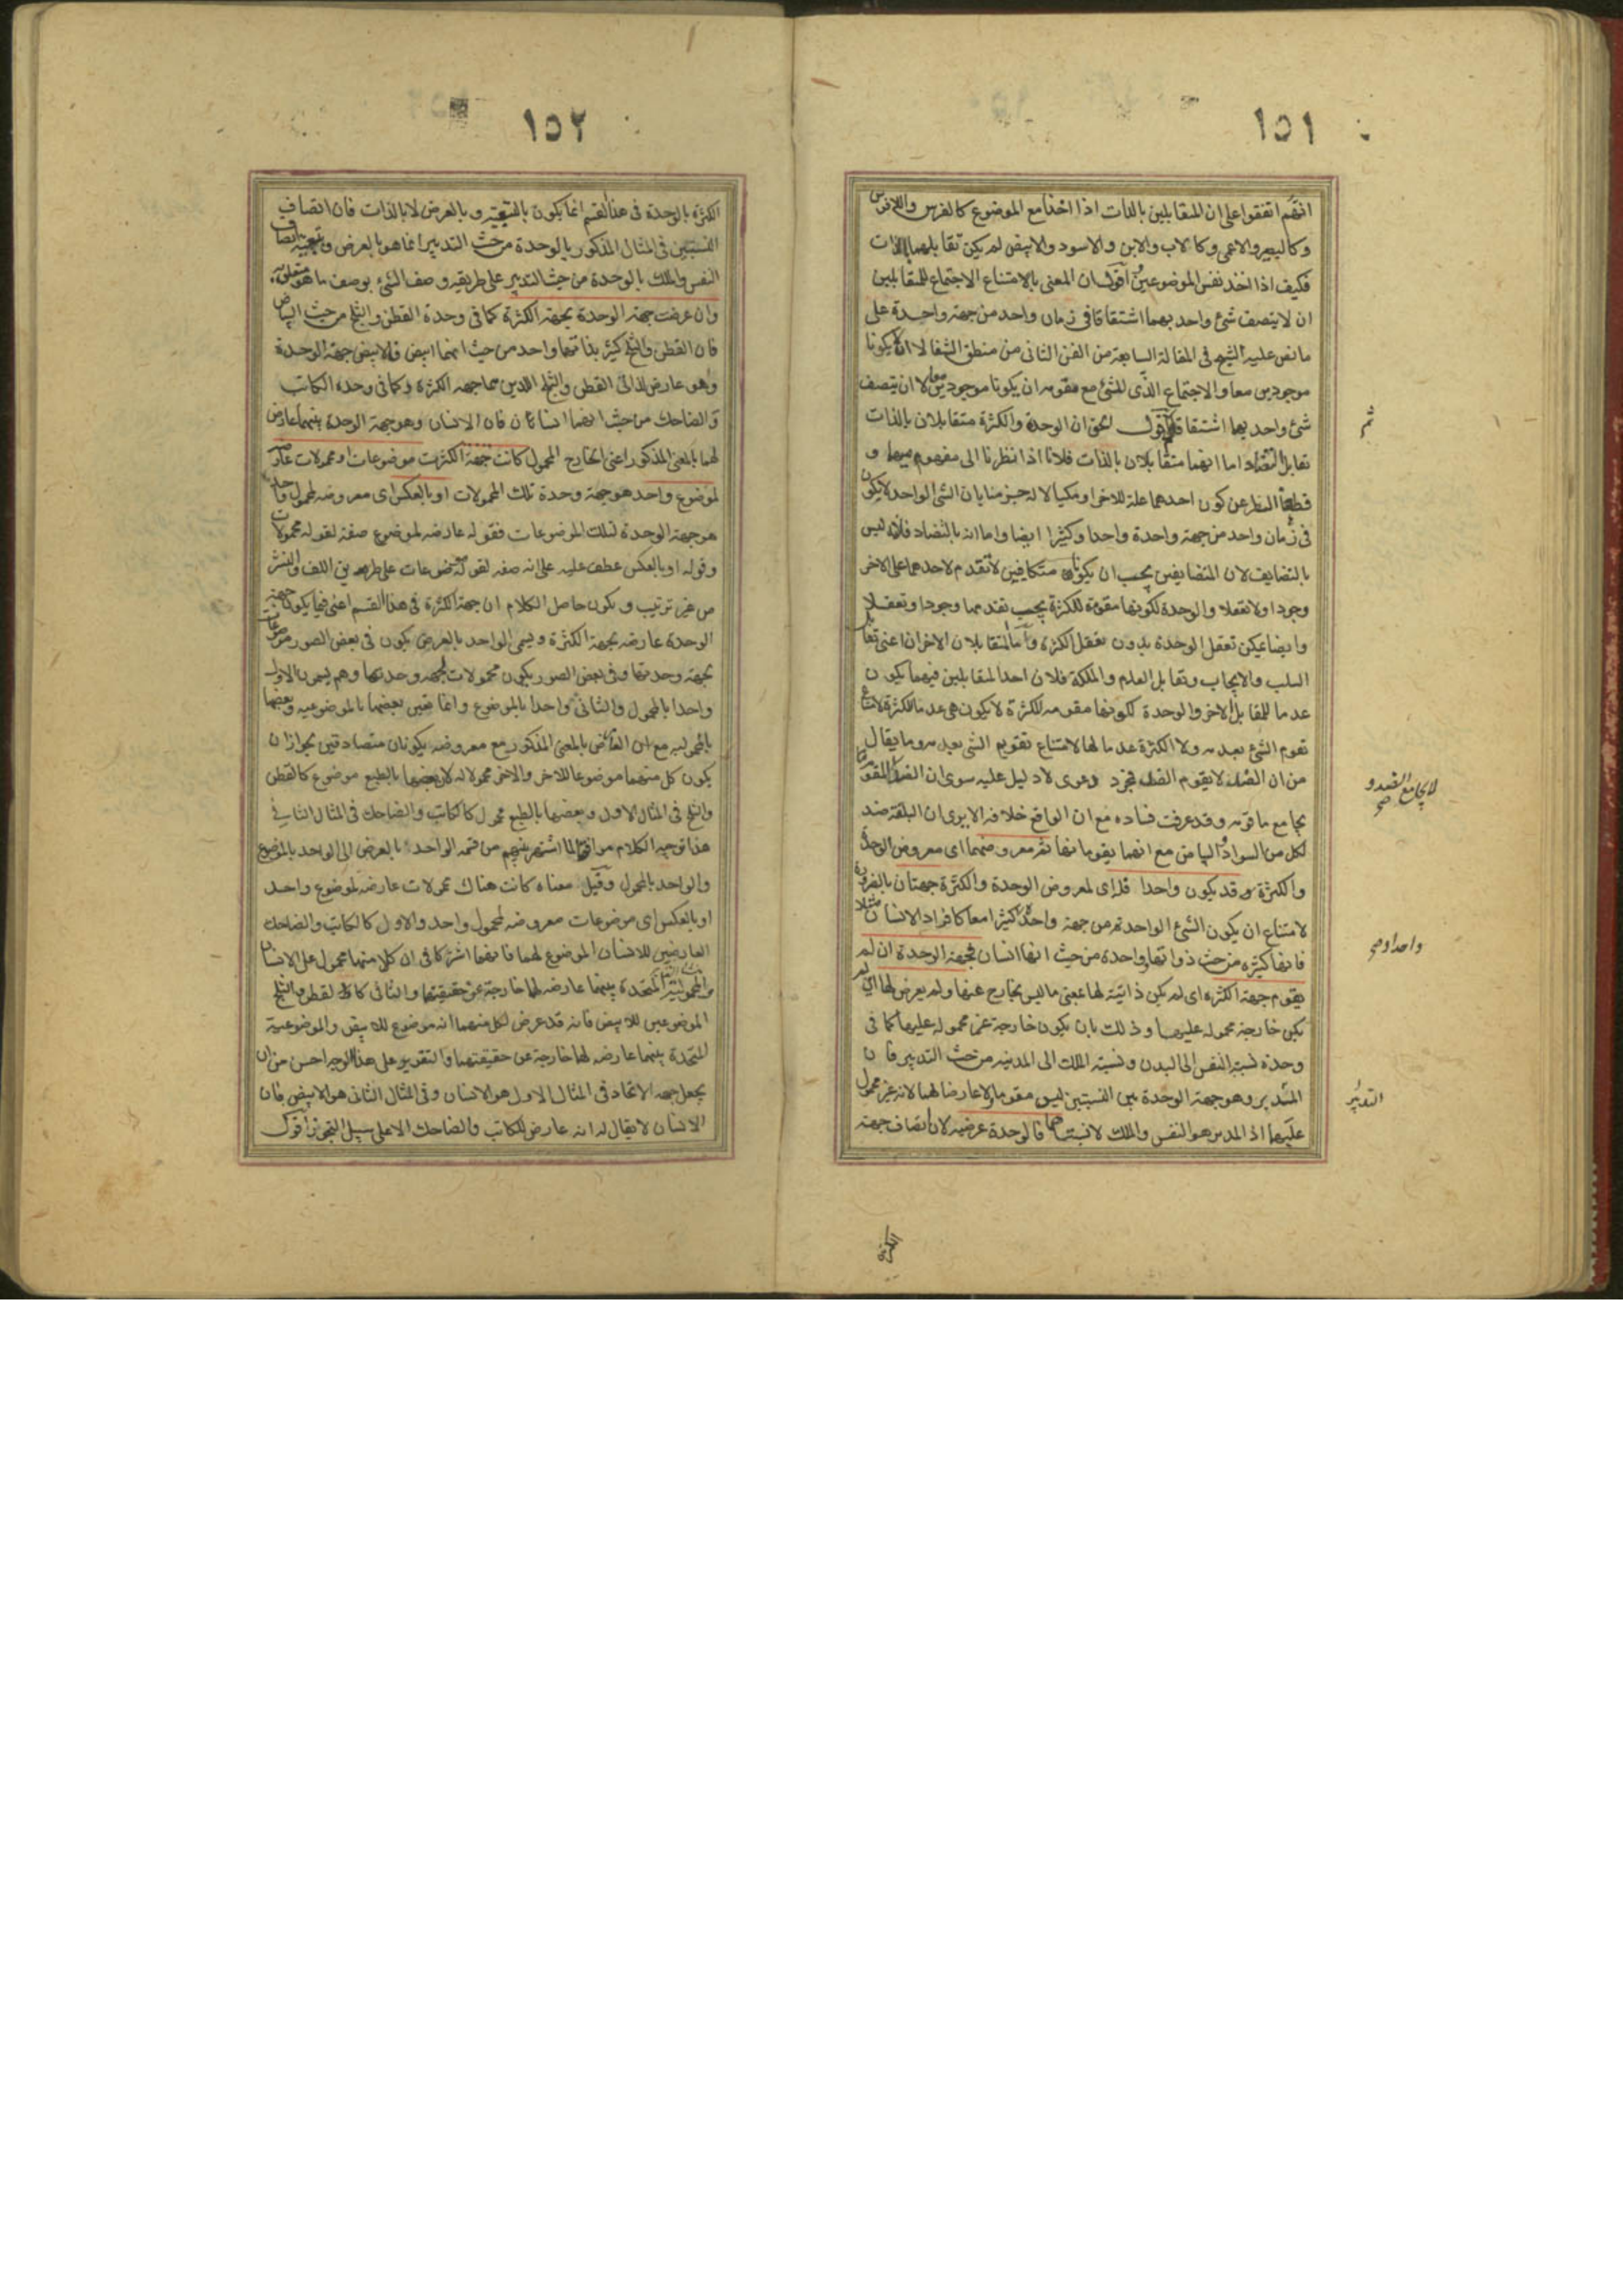 ١٥١
انهم اتفقوا على ان المتقابلين بالذات اذا اخذا مع الموضوع كالفرس واللافرس
وكالبصير والاعمى وكالاب والابن والاسود والابيض لم يكن تقابلهما بالذات
فكيف اذا اخذ نفس الموضوعين اقول ان المعنى بالامتناع الاجتماع للمتقابلين
ان لا يتصف شئ واحد بهما اشتقاقا فى زمان واحد من جهة واحدة على
ما نص عليه الشيخ فى المقالة السابعة من الفن الثانى من منطق الشفا لا ان يكونا
موجودين معا والاجتماع الذى للشئ مع مقومه ان يكونا موجودين معا لا ان يتصف
شئ واحد بهما اشتقاقا ثم اقول الحق ان الوحدة والكثرة متقابلان بالذات
تقابل التضاد اما انهما متقابلان بالذات فلانا اذا نظرنا الى مفهوميهما و
قطعنا النظر عن كون احدهما علة للاخر او مكيالا له جزمنا بان الشئ الواحد لا يكون
فى زمان واحد من جهة واحدة واحدا وكثيرا ايضا واما انه بالتضاد فلانه ليس
بالتضايف لان المتضايفين يجب ان يكونا متكافيين لا تقدم لاحدهما على الاخر
وجودا ولا تعقلا والوحدة لكونها مقومة للكثرة يجب تقدمها وجودا وتعقلا
وايضا يمكن تعقل الوحدة بدون تعقل الكثرة واما المتقابلان الاخران اعنى تقابل
السلب والايجاب وتقابل العدم والملكة فلان احد المتقابلين فيهما يكون
عدما للمقابل الاخر والوحدة لكونها مقومة للكثرة لا يكون هى عدما للكثرة لامتناع
تقوم الشئ بعدمه ولا الكثرة عدما لها لامتناع تقويم الشئ بعدمه وما يقال
من ان الضد لا يقوم الضد فمجرد دعوى لا دليل عليه سوى ان المقوم
يجامع ما قومه وقد عرفت فساده مع ان الواقع خلافه الا يرى ان البلقة ضد
لكل من السواد والبياض مع انهما يقومانها ثم معروضهما اى معروض الوحدة
والكثرة قد يكون واحدا فله اى لمعروض الوحدة والكثرة جهتان بالضرورة
لامتناع ان يكون الشئ الواحد من جهة واحدة كثيرا معا كافراد الانسان مثلا
فانها كثيرة من حيث ذواتها وواحدة من حيث انها انسان فجهة الوحدة ان لم
يقوم جهة الكثرة اى لم يكن ذاتية لها بمعنى ما ليس بخارج عنها ولم يعرض لها اى لم
يكن خارجة محمولة عليها وذلك بان يكون خارجة غير محمولة عليها كما فى
وحدة نسبة النفس الى البدن ونسبة الملك الى المدينة من حيث التدبير فان
التدبير وهو جهة الوحدة بين النسبتين ليس مقوما ولا عارضا لهما لانه غير محمول
عليهما اذ المدبر هو النفس والملك لا نسبتاهما فالوحدة عرضية لان اتصاف جهة
ثم
لا يجامع الضد و
صح
واحدا و صح
التدبير
الكثرة
١٥٢
الكثرة بالوحدة فى هذا القسم انما يكون بالتبعية وبالعرض لا بالذات فان اتصاف
النسبتين فى المثال المذكور بالوحدة من حيث التدبير انما هو بالعرض وتبعية اتصاف
النفس والملك بالوحدة من حيث التدبير على طريقة وصف الشئ بوصف ما هو متعلق به
وان عرضت جهة الوحدة بجهة الكثرة كما فى وحدة القطن والثلج من حيث البياض
فان القطن والثلج كثير بذاتهما واحد من حيث انهما ابيض فالابيض جهة الوحدة
وهو عارض لذاتى القطن والثلج اللذين هما جهة الكثرة وكما فى وحدة الكاتب
والضاحك من حيث انهما انسانان فان الانسان وهو جهة الوحدة بينهما عارض
لهما بالمعنى المذكور اعنى الخارج المحمول كانت جهة الكثرة موضوعات او محمولات عارضة
لموضوع واحد هو جهة وحدة تلك المحمولات او بالعكس اى معروضة لمحمول واحد
هو جهة الوحدة لتلك الموضوعات فقوله عارضة لموضوع صفة لقوله محمولات
وقوله او بالعكس عطف عليه على انه صفة لقوله موضوعات على طريق اللف والنشر
من غير ترتيب ويكون حاصل الكلام ان جهة الكثرة فى هذا القسم اعنى فيما يكون جهة
الوحدة عارضة بجهة الكثرة ويسمى الواحد بالعرض يكون فى بعض الصور موضوعات
بجهة وحدتها وفى بعض الصور يكون محمولات لجهة وحدتها وهم يسمون الاول
واحدا بالمحمول والثانى واحدا بالموضوع وانما تعين بعضها بالموضوعية وبعضها
بالمحمولية مع ان العارض بالمعنى المذكور مع معروضه يكونان متصادقين يجوز ان
يكون كل منهما موضوعا للاخر والاخر محمولا له لان بعضها بالطبع موضوع كالقطن
والثلج فى المثال الاول وبعضها بالطبع محمول كالكاتب والضاحك فى المثال الثانى
هذا توجيه الكلام موافقا لما اشتهر بينهم من قسمة الواحد بالعرض الى الواحد بالموضوع
والواحد بالمحمول وقيل معناه كانت هناك محمولات عارضة لموضوع واحد
او بالعكس اى موضوعات معروضة لمحمول واحد والاول كالكاتب والضاحك
العارضين للانسان الموضوع لهما فانهما اشتركا فى ان كلا منهما محمول على الانسان
والمحمولية المتحدة بينهما عارضة لهما خارجة عن حقيقتهما والثانى كالقطن والثلج
الموضوعين للابيض فانه قد عرض لكل منهما انه موضوع للابيض والموضوعية
المتحدة بينهما عارضة لهما خارجة عن حقيقتهما والتقرير على هذا الوجه احسن من ان
يجعل جهة الاتحاد فى المثال الاول هو الانسان وفى المثال الثانى هو الابيض فان
الانسان لا يقال له انه عارض للكاتب والضاحك الا على سبيل التجوز اقول